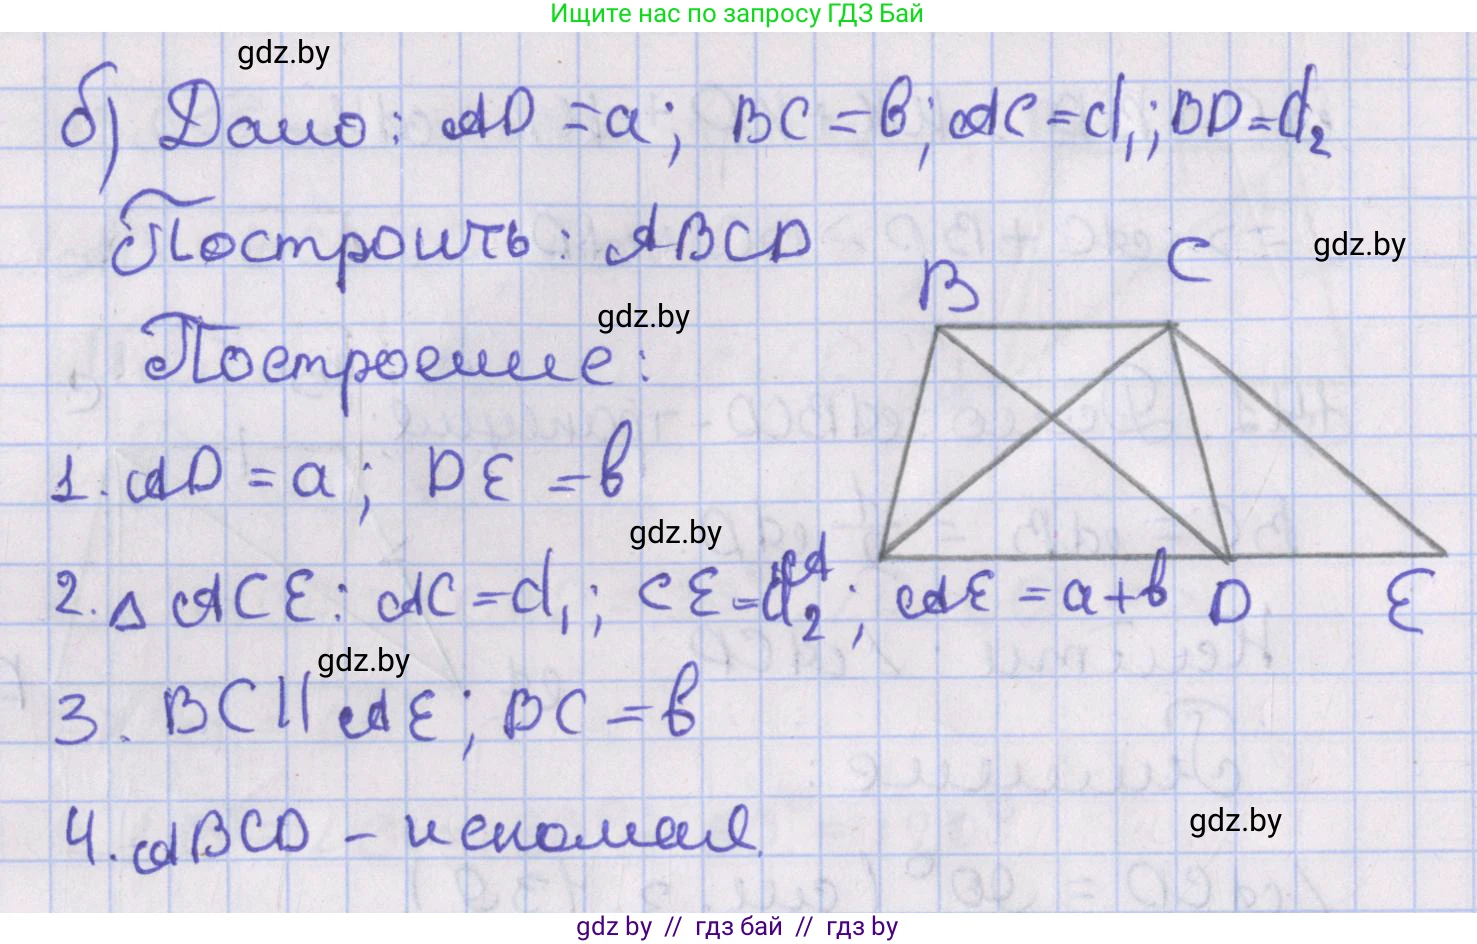 Ищите нас по запросу ГДЗ Бай
gdz.by
б) Дано: AD = a; BC = в; AC = d₁; BD = d₂
Построить: ABCD
gdz.by
B C
gdz.by
Построение:
1. AD = a; DE = в
gdz.by
A D E
2. △ ACE: AC = d₁; CE = d₂; AE = a+в
gdz.by
3. BC || AE; BC = в
gdz.by
4. ABCD – искомая.
gdz.by // гдз бай // гдз by